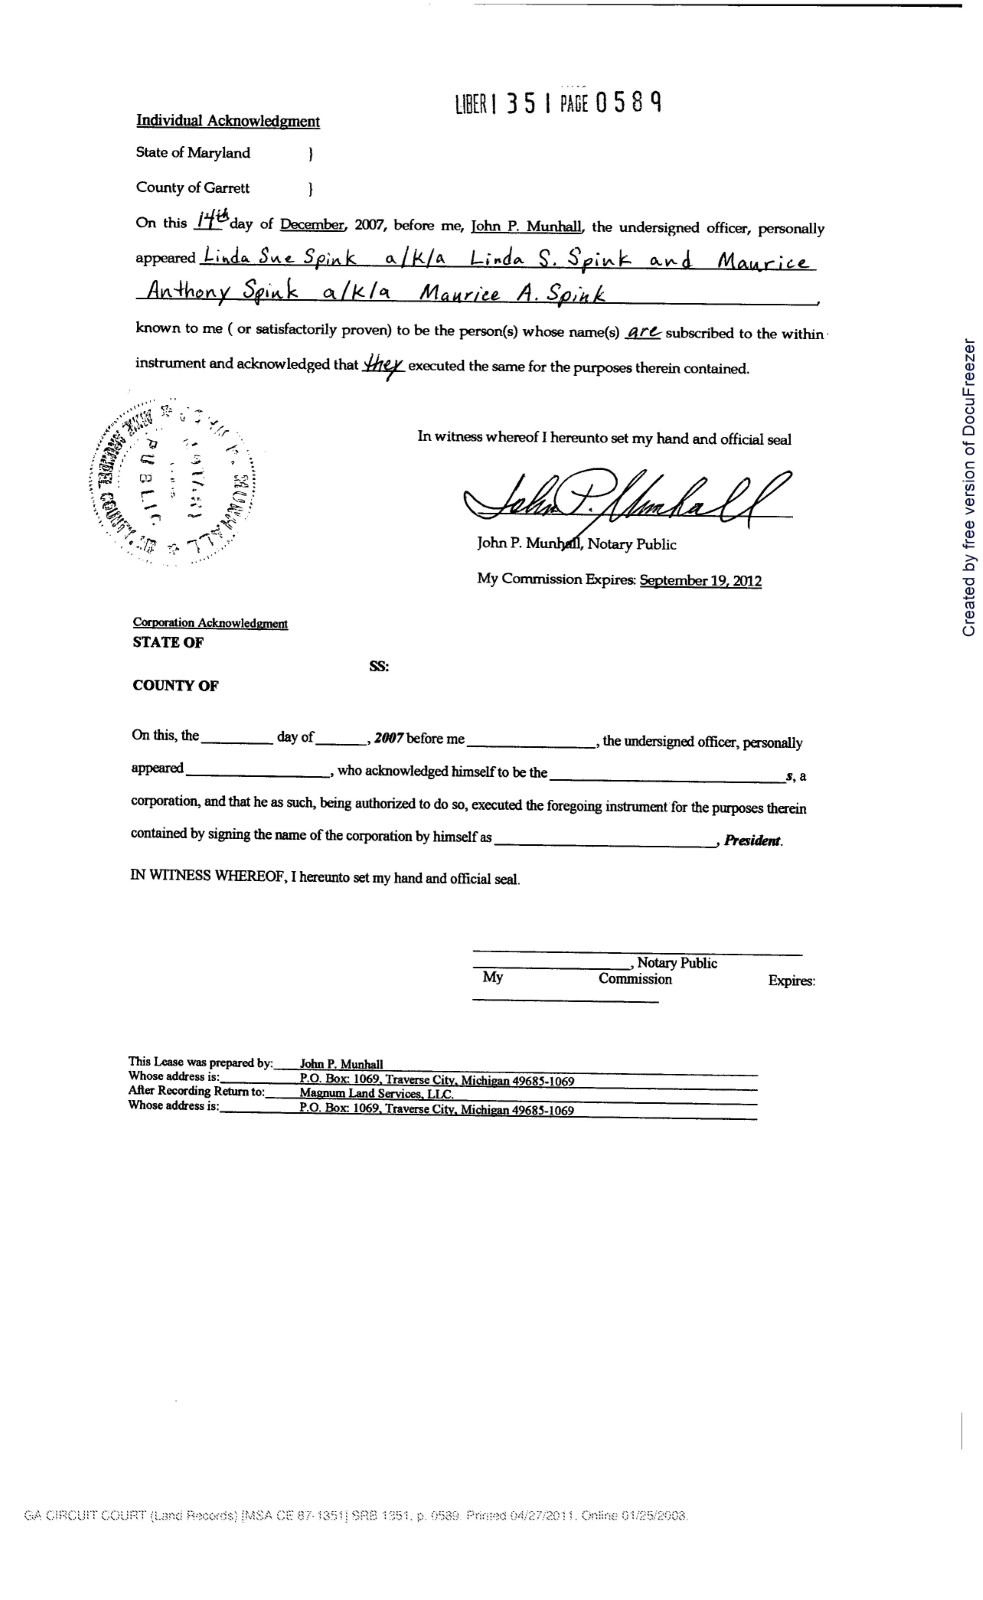 LIBER 1351 PAGE 0589
Individual Acknowledgment
State of Maryland }
County of Garrett }
On this 14th day of December, 2007, before me, John P. Munhall, the undersigned officer, personally
appeared Linda Sue Spink a/k/a Linda S. Spink and Maurice
Anthony Spink a/k/a Maurice A. Spink,
known to me ( or satisfactorily proven) to be the person(s) whose name(s) are subscribed to the within
instrument and acknowledged that they executed the same for the purposes therein contained.
In witness whereof I hereunto set my hand and official seal
JOHN P. MUNHALL
NOTARY
PUBLIC
John P. Munhall
John P. Munhall, Notary Public
My Commission Expires: September 19, 2012
Corporation Acknowledgment
STATE OF
SS:
COUNTY OF
On this, the _________ day of ______, 2007 before me ________________, the undersigned officer, personally
appeared __________________, who acknowledged himself to be the ______________________________s, a
corporation, and that he as such, being authorized to do so, executed the foregoing instrument for the purposes therein
contained by signing the name of the corporation by himself as ____________________________, President.
IN WITNESS WHEREOF, I hereunto set my hand and official seal.
____________________, Notary Public
My Commission Expires:
This Lease was prepared by: John P. Munhall
Whose address is: P.O. Box: 1069, Traverse City, Michigan 49685-1069
After Recording Return to: Magnum Land Services, LLC.
Whose address is: P.O. Box: 1069, Traverse City, Michigan 49685-1069
GA CIRCUIT COURT (Land Records) [MSA CE 87-1351] SRB 1351, p. 0589. Printed 04/27/2011. Online 01/25/2008.
Created by free version of DocuFreezer